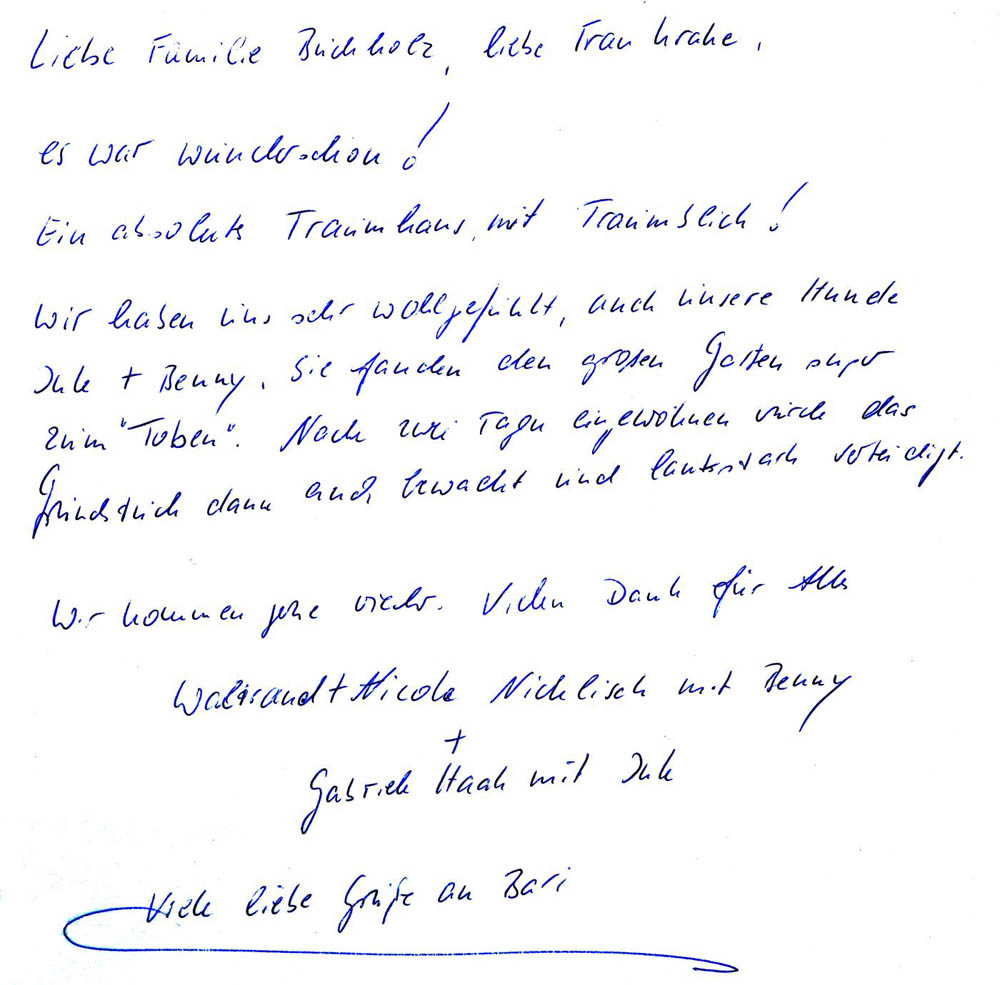 Liebe Familie Buchholz, liebe Frau Krahe,
es war wunderschön!
Ein absolutes Traumhaus, mit Traumblick!
Wir haben uns sehr wohlgefühlt, auch unsere Hunde
Jule + Benny. Sie fanden den großen Garten super
zum "Toben". Nach zwei Tagen eingewöhnen wurde das
Grundstück dann auch bewacht und lautstark verteidigt.
Wir kommen gerne wieder. Vielen Dank für Alles
Waltraud + Nicole Nicklisch mit Benny
+
Gabriele Haak mit Jule
Viele liebe Grüße an Bari